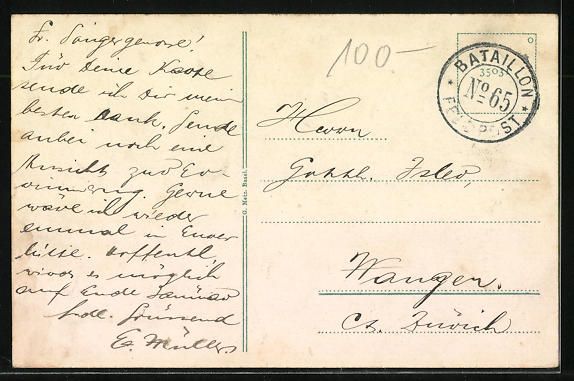 Für Deine Karte
sende ich Dir mein
besten Dank. Sende
anbei noch eine
Ansicht zur Er-
innerung. Gerne
wäre ich wieder
einmal in Euer
Hütte. Hoffentl.
wird es möglich
auf Ende Januar
grüssend
E. Müller.
G. Metz, Basel.
100-
BATAILLON
3505
No 65
FELDPOST
Herrn
Gottl.
Wangen.
Ct. Zürich